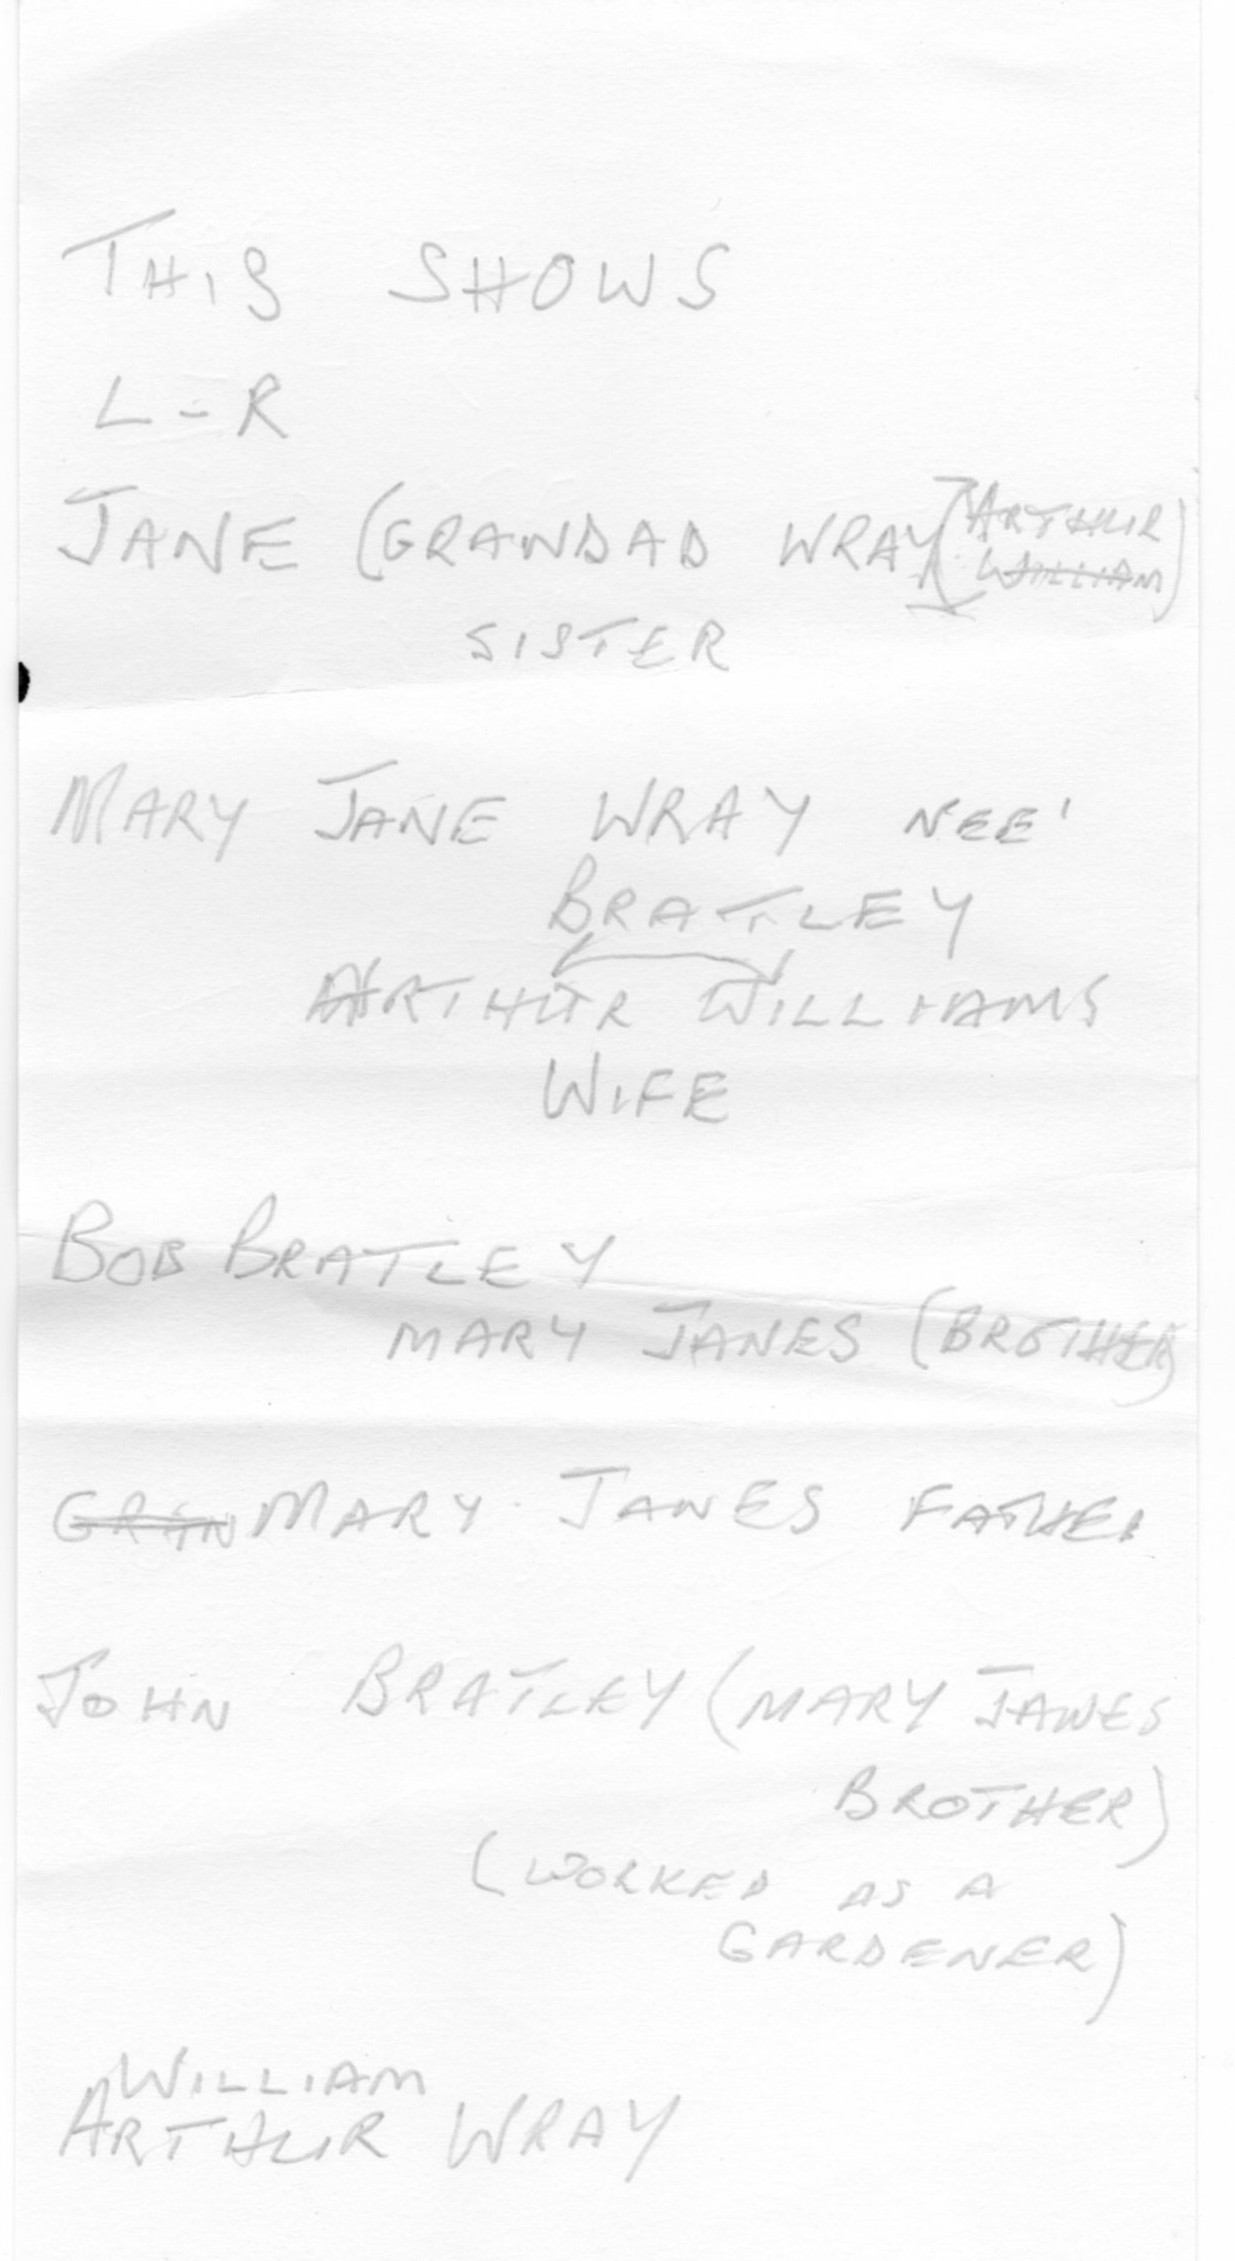 THIS SHOWS
L - R
JANE (GRANDAD WRAY (ARTHUR
WILLIAM)
SISTER
MARY JANE WRAY NEE'
BRATLEY
ARTHUR WILLIAMS
WIFE
BOB BRATLEY
MARY JANES (BROTHER)
GRAN MARY JANES FATHER
JOHN BRATLEY (MARY JANES
BROTHER)
(WORKED AS A
GARDENER)
WILLIAM
ARTHUR WRAY